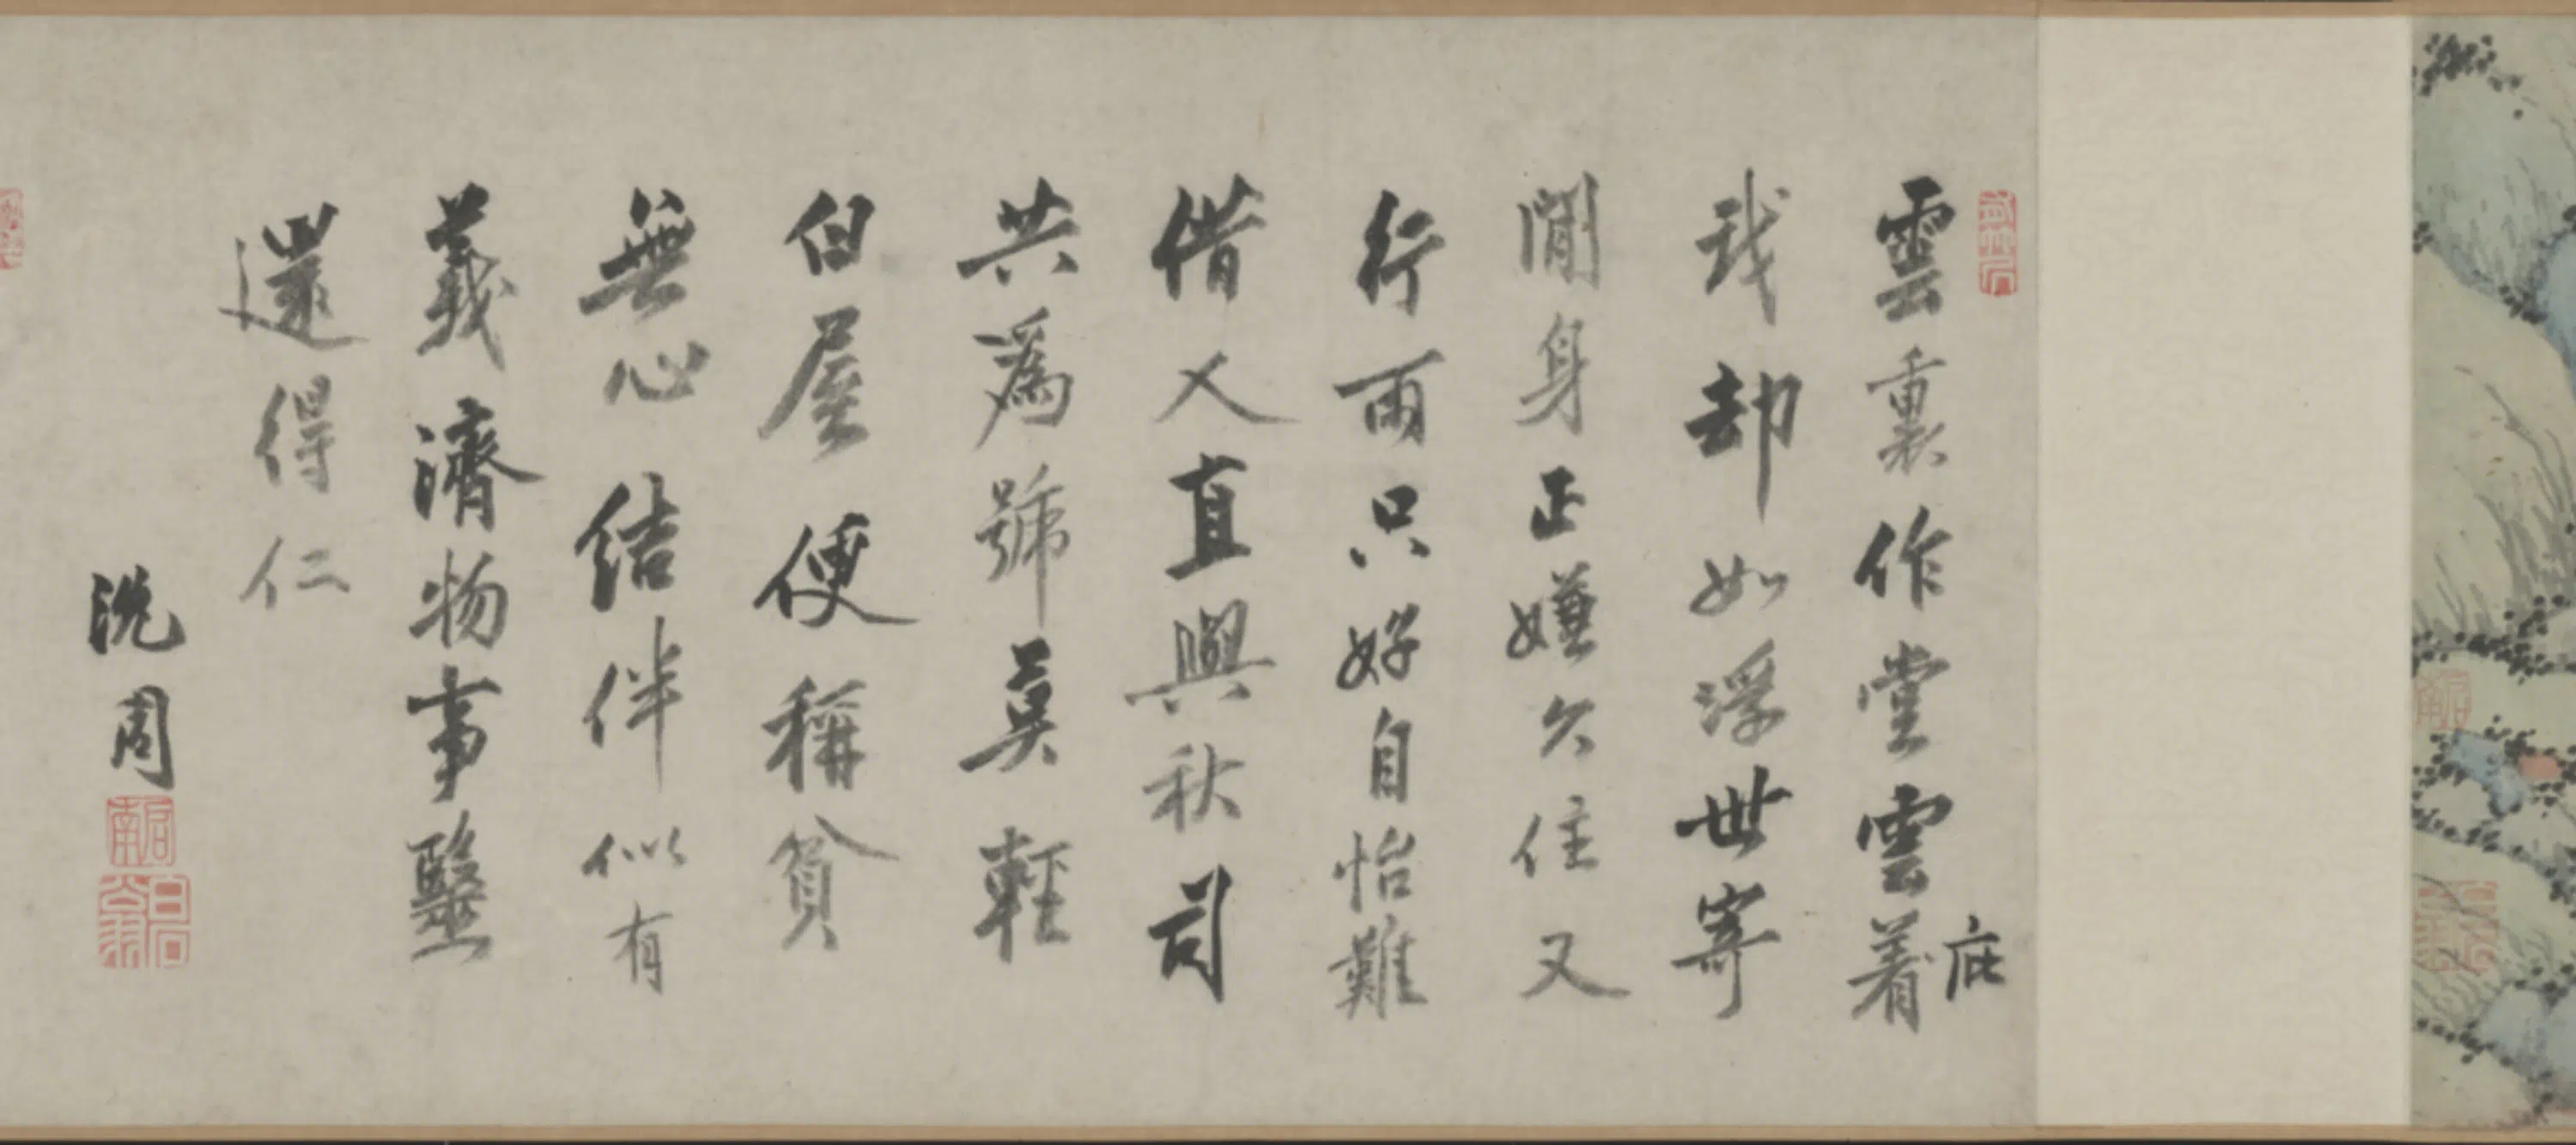 雲裏作堂雲着庇
我却如浮世寄
閒身正嫌久住又
行雨只好自怡難
借人直與秋司
共爲號莫輕
白屋便稱貧
無心結伴似有
義濟物事毉
還得仁
沈周
啓南
白石翁